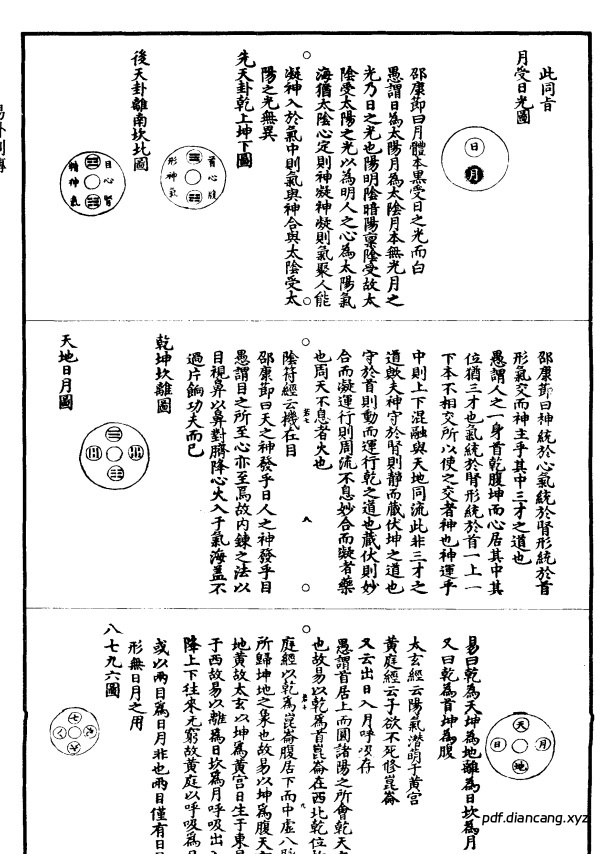 此同旨
月受日光圖
日
月
邵康節曰月體本黑受日之光而白
愚謂日為太陽月為太陰月本無光月之
光乃日之光也陽明陰暗陽稟陰受故太
陰受太陽之光以為明人之心為太陽氣
海猶太陰心定則神凝神凝則氣聚人能
凝神入於氣中則氣與神合與太陰受太
陽之光無異
先天卦乾上坤下圖
首 心 腹
形 神 氣
後天卦離南坎北圖
目 心 腎
精 神 氣
邵康節曰神統於心氣統於腎形統於首
形氣交而神主乎其中三才之道也
愚謂人之一身首乾腹坤而心居其中其
位猶三才也氣統於腎形統於首一上一
下本不相交所以使之交者神也神運乎
中則上下混融與天地同流此非三才之
道歟夫神守於腎則靜而藏伏坤之道也
守於首則動而運行乾之道也藏伏則妙
合而凝運行則周流不息妙合而凝者藥
也周天不息者火也
陰符經云機在目
邵康節曰天之神發乎日人之神發乎目
愚謂目之所至心亦至焉故内鍊之法以
目視鼻以鼻對臍降心火入于氣海蓋不
過片餉功夫而已
乾坤坎離圖
天地日月圖
天
月
日
地
易曰乾為天坤為地離為日坎為月
又曰乾為首坤為腹
太玄經云陽氣潛萌于黃宮
黃庭經云子欲不死修崑崙
又云出日入月呼吸存
愚謂首居上而圓諸陽之所會乾天
也故易以乾為首崑崙在西北乾位
庭經以乾為崑崙腹居下而中虛八脉
所歸坤地之象也故易以坤為腹天
地黃故太玄以坤為黃宮日生于東
于西故易以離為日坎為月呼吸出
降上下往來无窮故黃庭以呼吸為
或以兩目為日月非也兩目僅有日
形無日月之用
八七九六圖
七
八
九
六
pdf.diancang.xyz